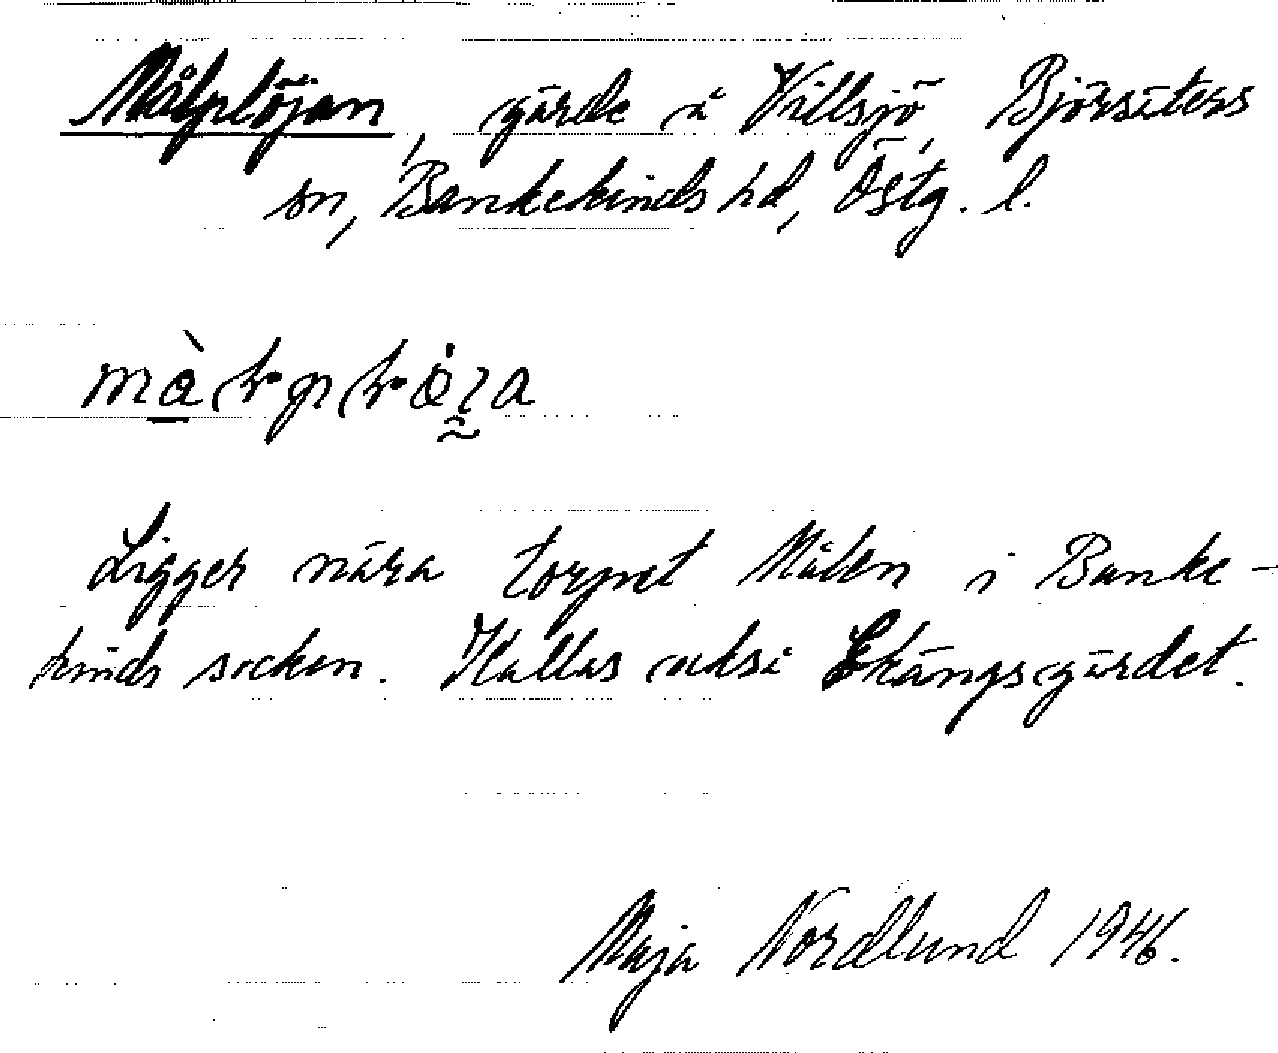 Målplöjan, gärde å Villsjö, Björsäters
sn, Bankekinds hd, Östg. l.
Ligger nära torpet Målen i Banke-
kinds socken. Kallas också Ekängsgärdet.
Maja Nordlund 1946.